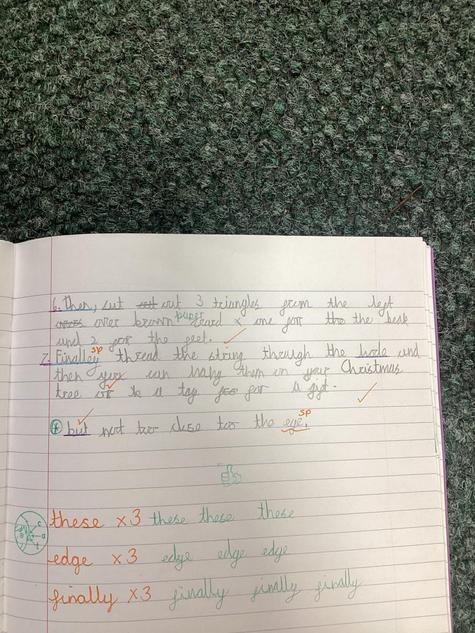 6. Then, cut out 3 triangles from the left
over brown paper card x one for the beak
and 2 for the feet.
7. Finalley sp thread the string through the hole and
then you can hang them on your Christmas
tree or a tag for a gift.
but not too close too the ege. sp
these x3 these these these
edge x3 edge edge edge
finally x3 finally finally finally